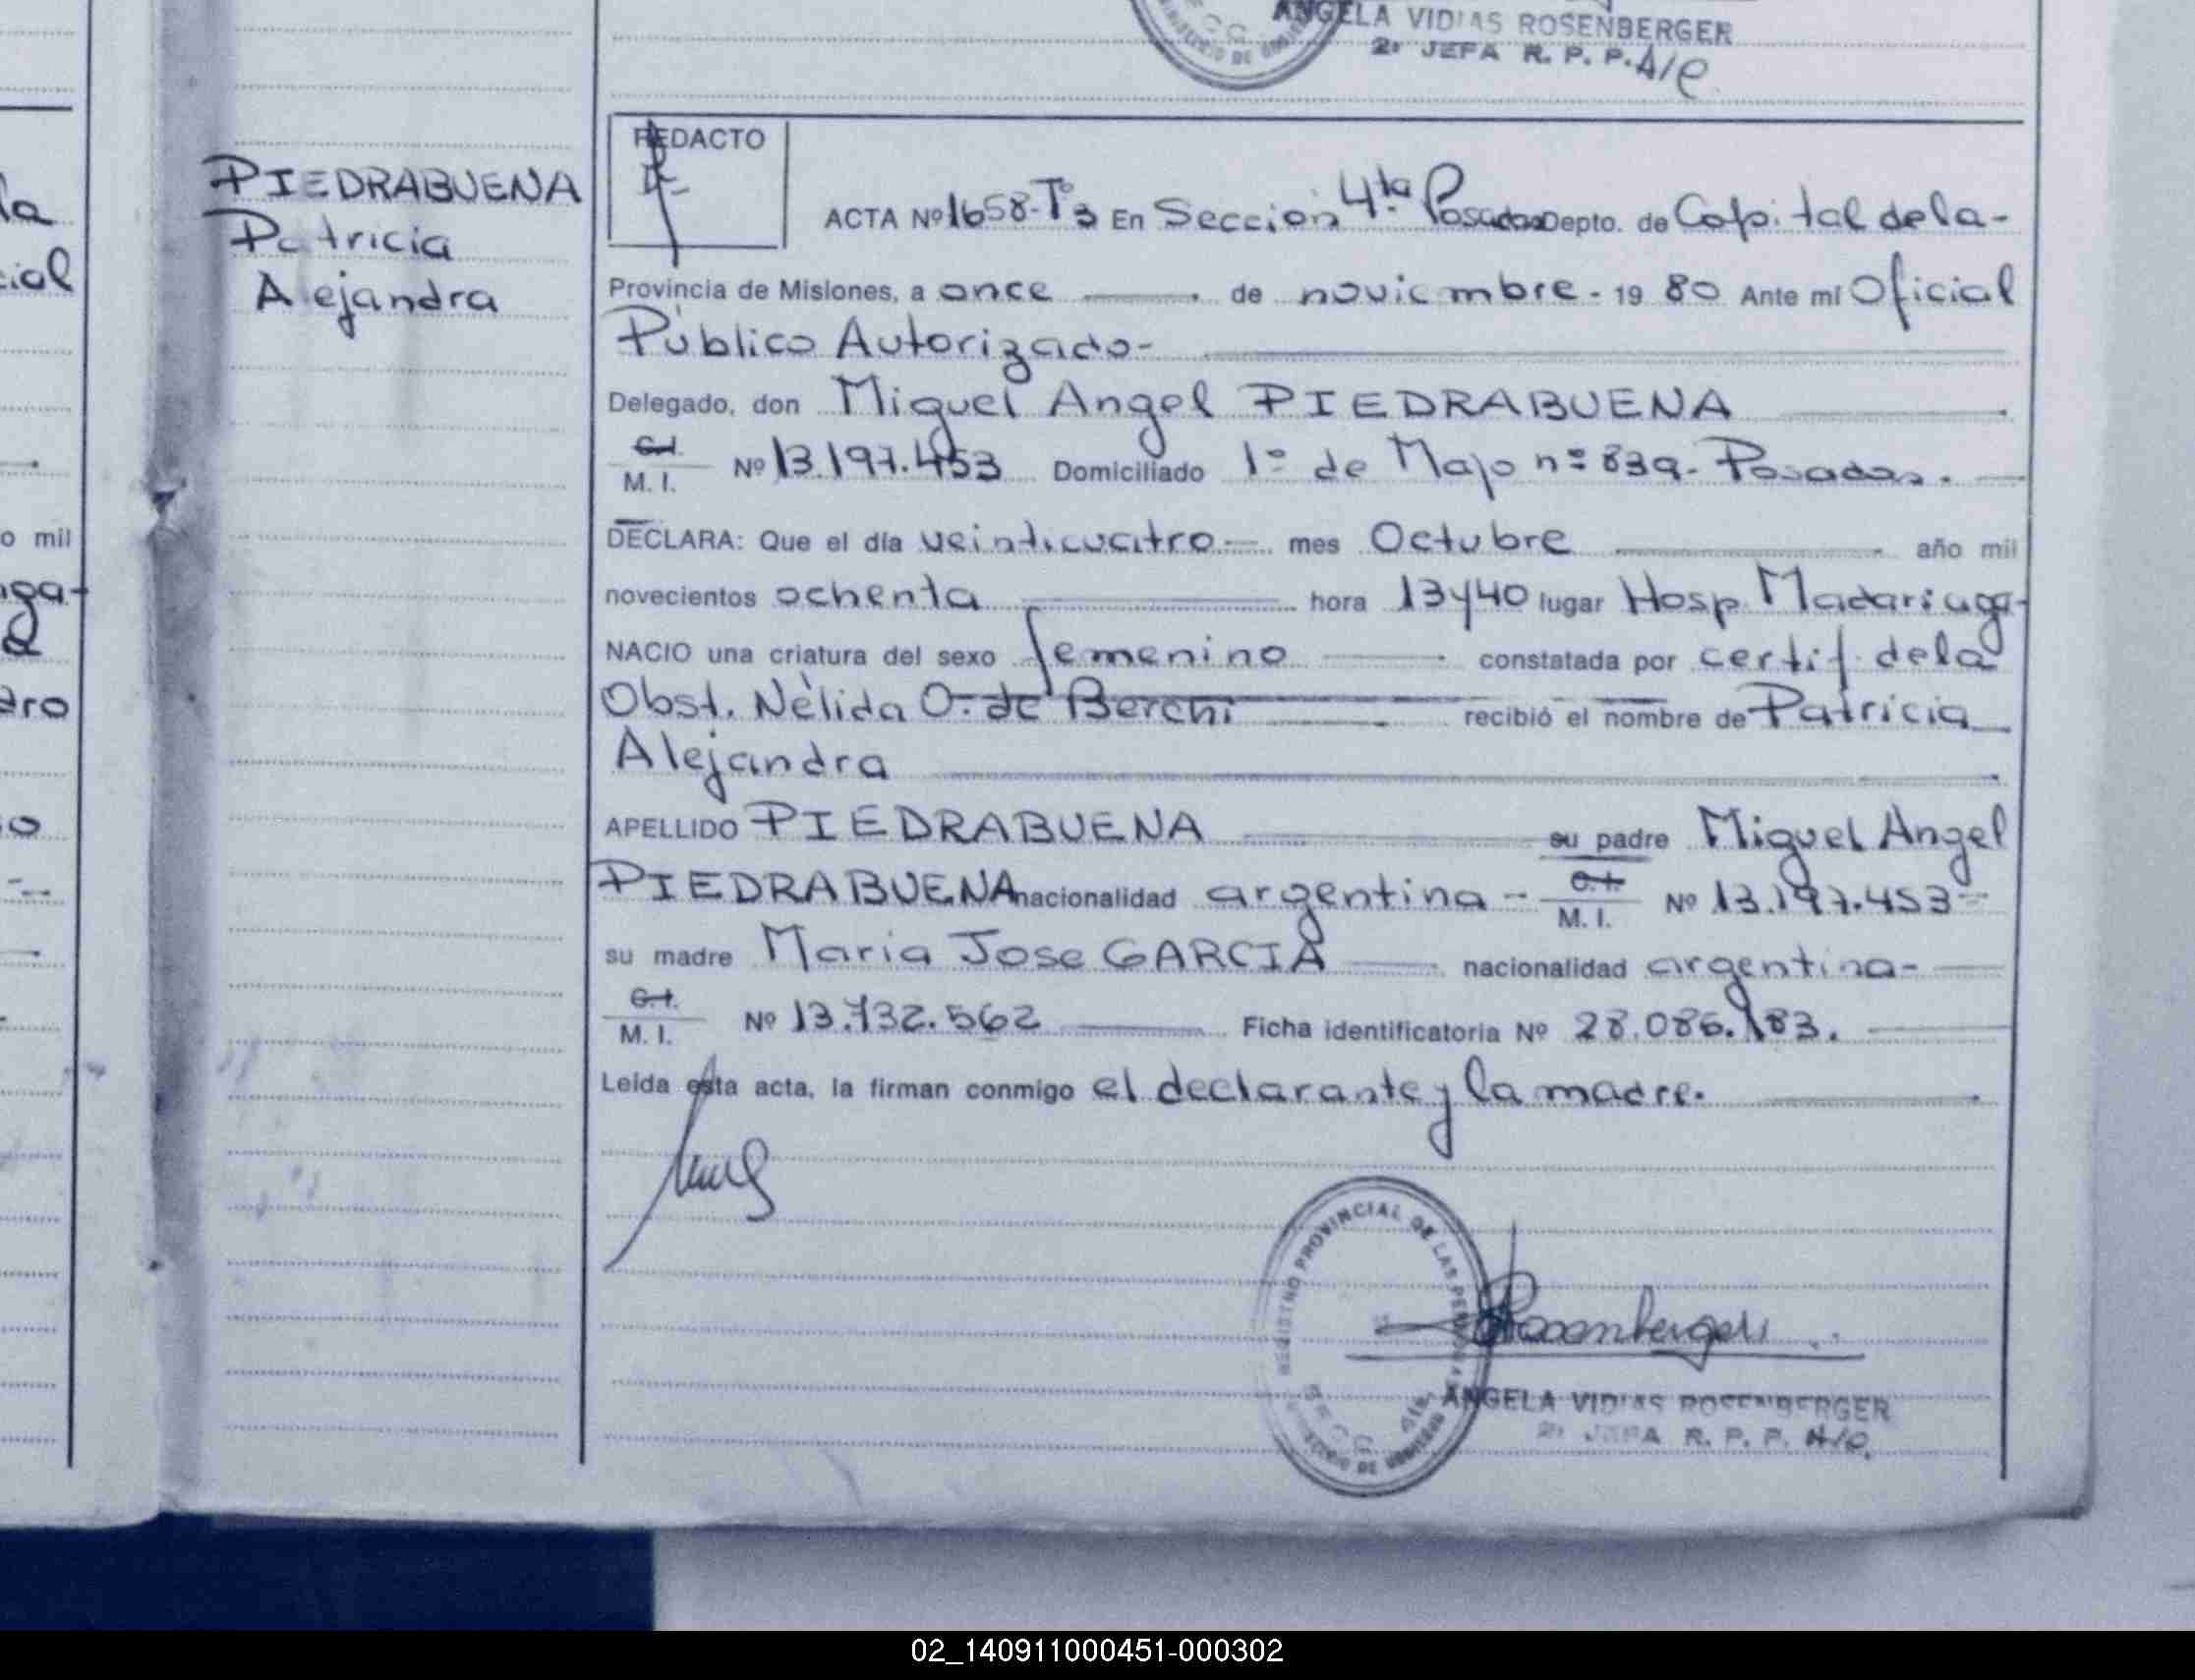 ANGELA VIDIAS ROSENBERGER
2ª JEFA R. P. P. A/C
la
cial
o mil
aga-
dro
PIEDRABUENA
Patricia
Alejandra
REDACTO
ACTA Nº 1658-Tº3 En Sección 4ta Posadas Depto. de Capital de la-
Provincia de Misiones, a once de noviembre - 19 80 Ante mi Oficial
Público Autorizado-
Delegado, don Miguel Angel PIEDRABUENA
C.I.
M. I. Nº 13.197.453 Domiciliado 1º de Mayo nº 839- Posadas.
DECLARA: Que el día veinticuatro mes Octubre año mil
novecientos ochenta hora 13y40 lugar Hosp. Madariaga-
NACIO una criatura del sexo femenino constatada por certif. de la
Obst. Nélida O. de Berchi recibió el nombre de Patricia
Alejandra
APELLIDO PIEDRABUENA su padre Miguel Angel
PIEDRABUENA nacionalidad argentina - C.I.
M. I. Nº 13.197.453-
su madre Maria Jose GARCIA nacionalidad argentina-
C.I.
M. I. Nº 13.732.562 Ficha identificatoria Nº 28.086.183.
Leída esta acta, la firman conmigo el declarante y la madre.
REGISTRO PROVINCIAL DE LAS PERSONAS
Rosenberger
ANGELA VIDIAS ROSENBERGER
2ª JEFA R. P. P. A/C.
02_140911000451-000302